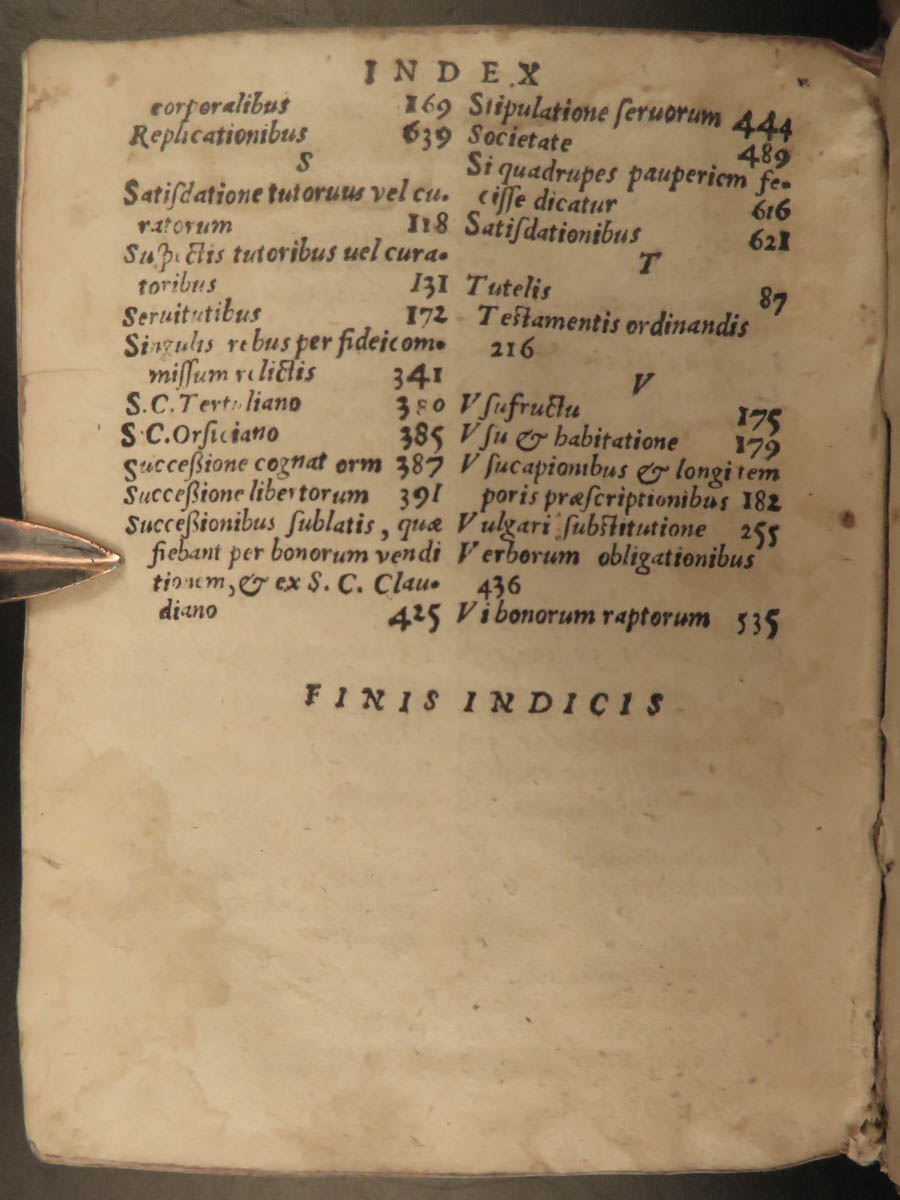 INDEX
corporalibus 169
Replicationibus 639
S
Satiſdatione tutoruus vel cu-
ratorum 118
Suſpectis tutoribus uel cura-
toribus 131
Seruitutibus 172
Singulis rebus per fideicom-
miſſum relictis 341
S.C. Tertuliano 380
S.C. Orficiano 385
Succeßione cognat orm 387
Succeßione libertorum 391
Succeßionibus ſublatis, quæ
fiebant per bonorum vendi
tionem, & ex S. C. Clau-
diano 425
Stipulatione ſeruorum 444
Societate 489
Si quadrupes pauperiem fe-
ciſſe dicatur 616
Satiſdationibus 621
T
Tutelis 87
Teſtamentis ordinandis
216
V
Vſufructu 175
Vſu & habitatione 179
Vſucapionibus & longi tem
poris præſcriptionibus 182
Vulgari ſubſtitutione 255
Verborum obligationibus
436
Vi bonorum raptorum 535
FINIS INDICIS